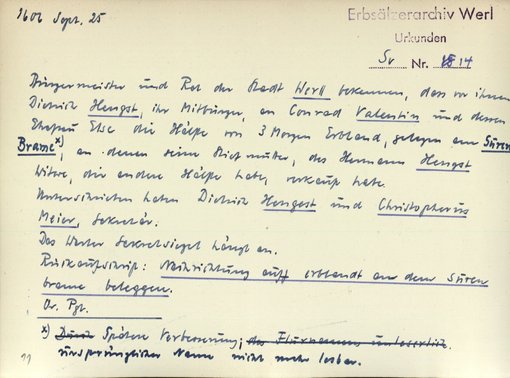 1602 Sept. 25
Erbsälzerarchiv Werl
Urkunden
Sv Nr. 14
Bürgermeister und Rat der Stadt Werl bekennen, dass vor ihnen
Dietrich Hengst, ihr Mitbürger, an Conrad Valentin und dessen
Ehefrau Else die Hälfte von 3 Morgen Erbland, gelegen am Süren
Brame x), an denen seine Stiefmutter, des Hermann Hengst
Witwe, die andere Hälfte hat, verkauft habe.
Unterschrieben haben Dietrich Hengest und Christopherus
Meier, Sekretär.
Das Werler Sekretsiegel hängt an.
Rückaufschrift: auff erblandt an dem Süren
brame beleggen.
Or. Pgt.
x) Durch Spätere Verbesserung; der Flurnamen unleserlich.
ursprünglicher Name nicht mehr lesbar.
11